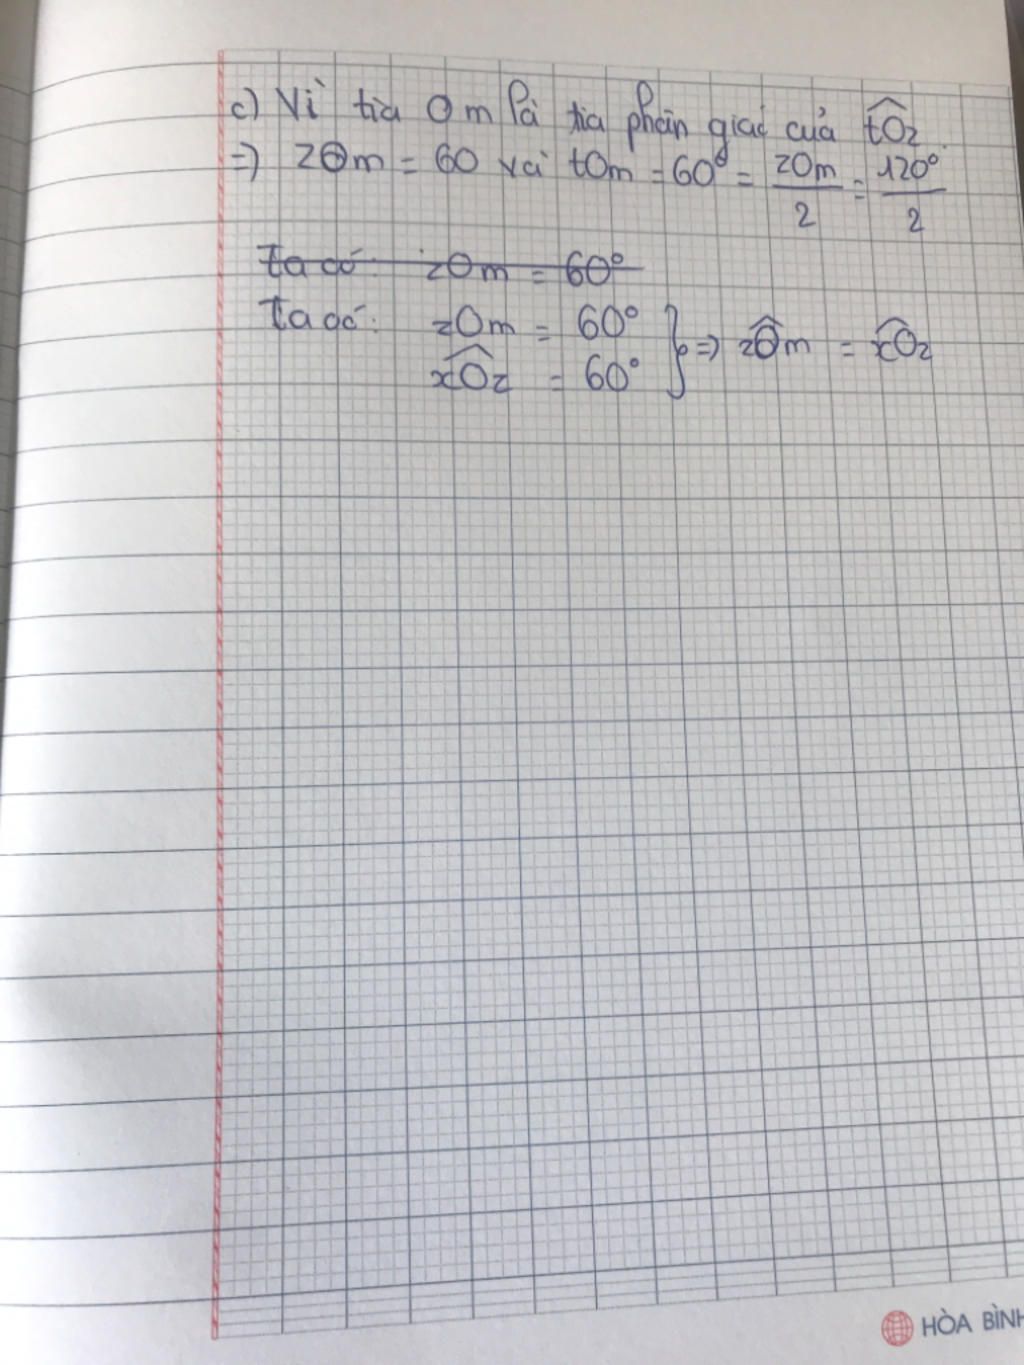 c) Vì tia Om là tia phân giác của \widehat{tOz}.
=) zOm = 60 và tOm = 60° = \frac{zOm}{2} = \frac{120°}{2}
Ta có: zOm = 60°
Ta có: zOm = 60° } => z\widehat{O}m = \widehat{xOz}
\widehat{xOz} = 60°
HÒA BÌNH